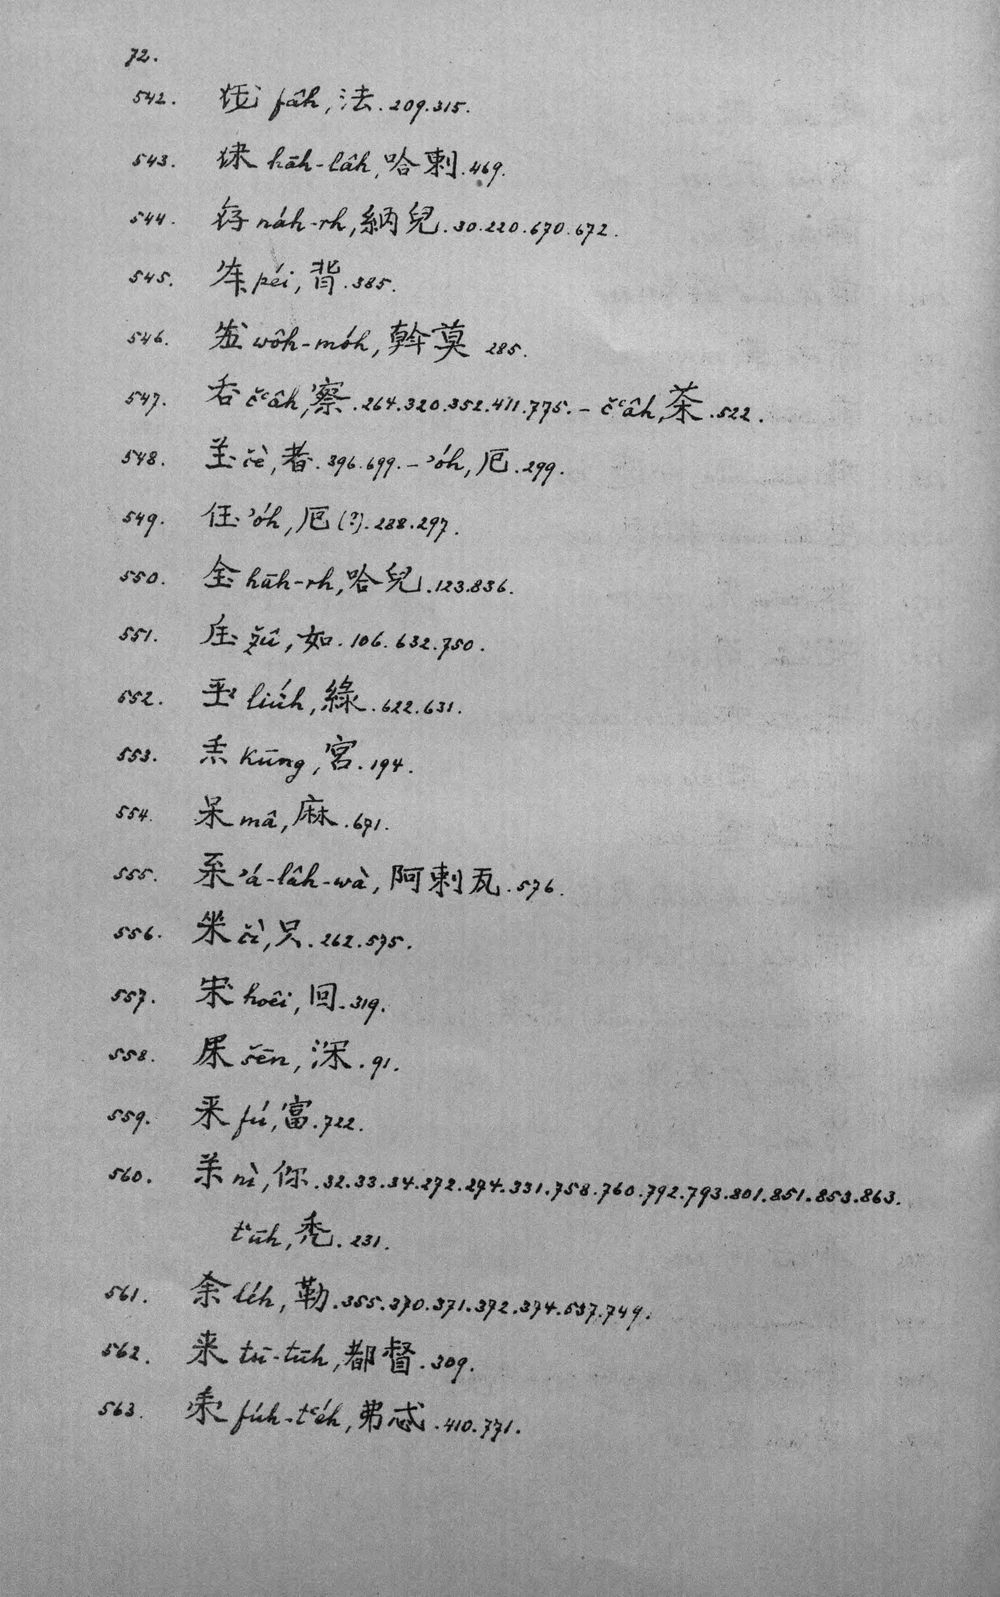 72.
542. fâh, 法. 209. 315.
543. hāh-lâh, 哈剌. 469.
544. náh-rh, 納兒. 30. 220. 670. 672.
545. péi, 背. 385.
546. wôh-móh, 斡莫 285.
547. čʻâh, 察. 264. 320. 352. 411. 775. – čʻâh, 茶. 522.
548. čè, 者. 396. 699. – ʼóh, 厄. 299.
549. ʼóh, 厄 (?). 288. 297.
550. hāh-rh, 哈兒. 123. 836.
551. žû, 如. 106. 632. 750.
552. liúh, 綠. 622. 631.
553. kūng, 宮. 194.
554. mâ, 麻. 671.
555. ʼá-lâh-wà, 阿剌瓦. 576.
556. čì, 只. 262. 575.
557. hoêi, 回. 319.
558. šēn, 深. 91.
559. fú, 富. 722.
560. nì, 你. 32. 33. 34. 272. 274. 331. 758. 760. 792. 793. 801. 851. 853. 863.
tʻūh, 禿. 231.
561. léh, 勒. 355. 370. 371. 372. 374. 537. 749.
562. tū-tūh, 都督. 309.
563. fúh-tʻéh, 弗忒. 410. 771.